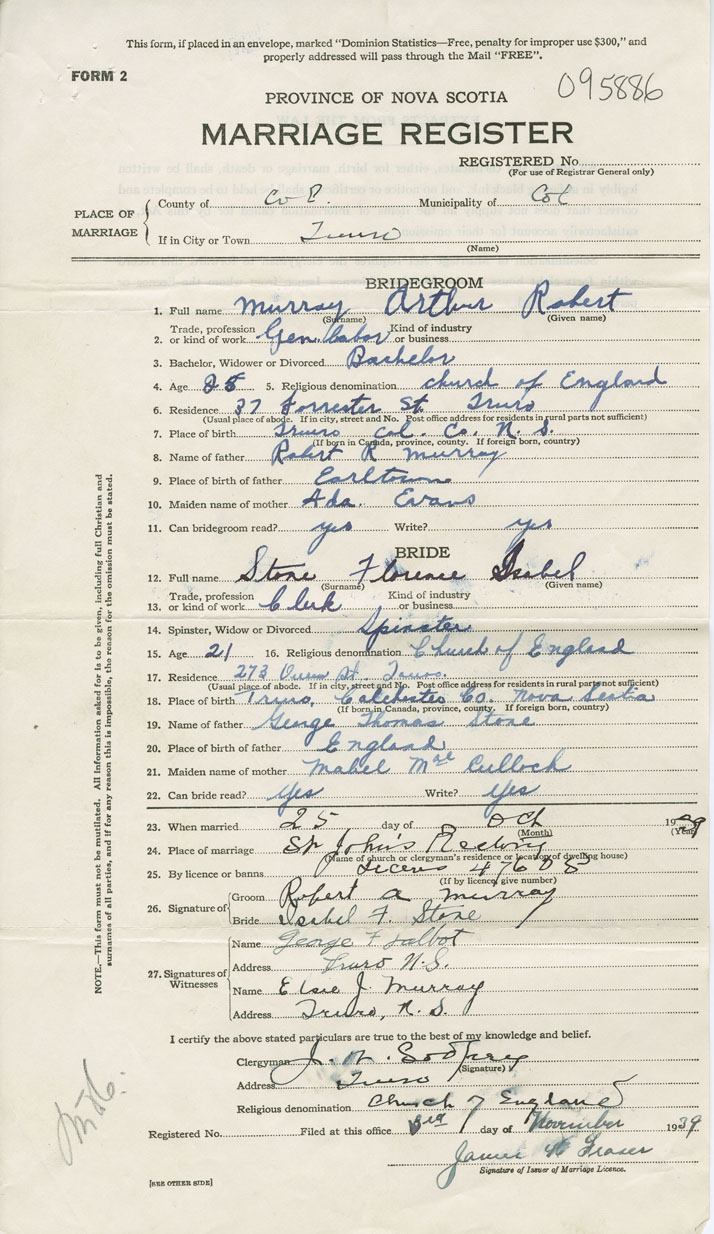 This form, if placed in an envelope, marked "Dominion Statistics—Free, penalty for improper use $300," and
properly addressed will pass through the Mail "FREE".
FORM 2
095886
PROVINCE OF NOVA SCOTIA
MARRIAGE REGISTER
REGISTERED No.
(For use of Registrar General only)
PLACE OF MARRIAGE
County of Col. Municipality of Col
If in City or Town Truro
(Name)
BRIDEGROOM
1. Full name Murray Arthur Robert
(Surname) (Given name)
2. Trade, profession or kind of work Gen. Labor Kind of industry or business
3. Bachelor, Widower or Divorced Bachelor
4. Age 25 5. Religious denomination church of England
6. Residence 37 Forrester St. Truro
(Usual place of abode. If in city, street and No. Post office address for residents in rural parts not sufficient)
7. Place of birth Truro Col. Co. N. S.
(If born in Canada, province, county. If foreign born, country)
8. Name of father Robert R Murray
9. Place of birth of father Earltown
10. Maiden name of mother Ada. Evans
11. Can bridegroom read? yes Write? yes
BRIDE
12. Full name Stone Florence Isabel
(Surname) (Given name)
13. Trade, profession or kind of work Clerk Kind of industry or business
14. Spinster, Widow or Divorced Spinster
15. Age 21 16. Religious denomination Church of England
17. Residence 273 St. Truro
(Usual place of abode. If in city, street and No. Post office address for residents in rural parts not sufficient)
18. Place of birth Truro, Colchester Co. Nova Scotia
(If born in Canada, province, county. If foreign born, country)
19. Name of father George Thomas Stone
20. Place of birth of father England
21. Maiden name of mother Mabel Mac Culloch
22. Can bride read? Yes Write? Yes
23. When married 25 day of Oct 1939
(Month) (Year)
24. Place of marriage St John's Rectory
(Name of church or clergyman's residence or location of dwelling house)
25. By licence or banns Licens
(If by licence, give number)
26. Signature of
Groom Robert A Murray
Bride Isabel F. Stone
27. Signatures of Witnesses
Name George F Talbot
Address Truro N.S.
Name Elsie J. Murray
Address Truro, N. S.
I certify the above stated particulars are true to the best of my knowledge and belief.
Clergyman J. W. Godfrey
(Signature)
Address Truro
Religious denomination Church of England
Registered No. Filed at this office 3rd day of November 1939
James W Fraser
Signature of Issuer of Marriage Licence.
[SEE OTHER SIDE]
NOTE.—This form must not be mutilated. All Information asked for is to be given, including full Christian and
surnames of all parties, and if for any reason this is impossible, the reason for the omission must be stated.